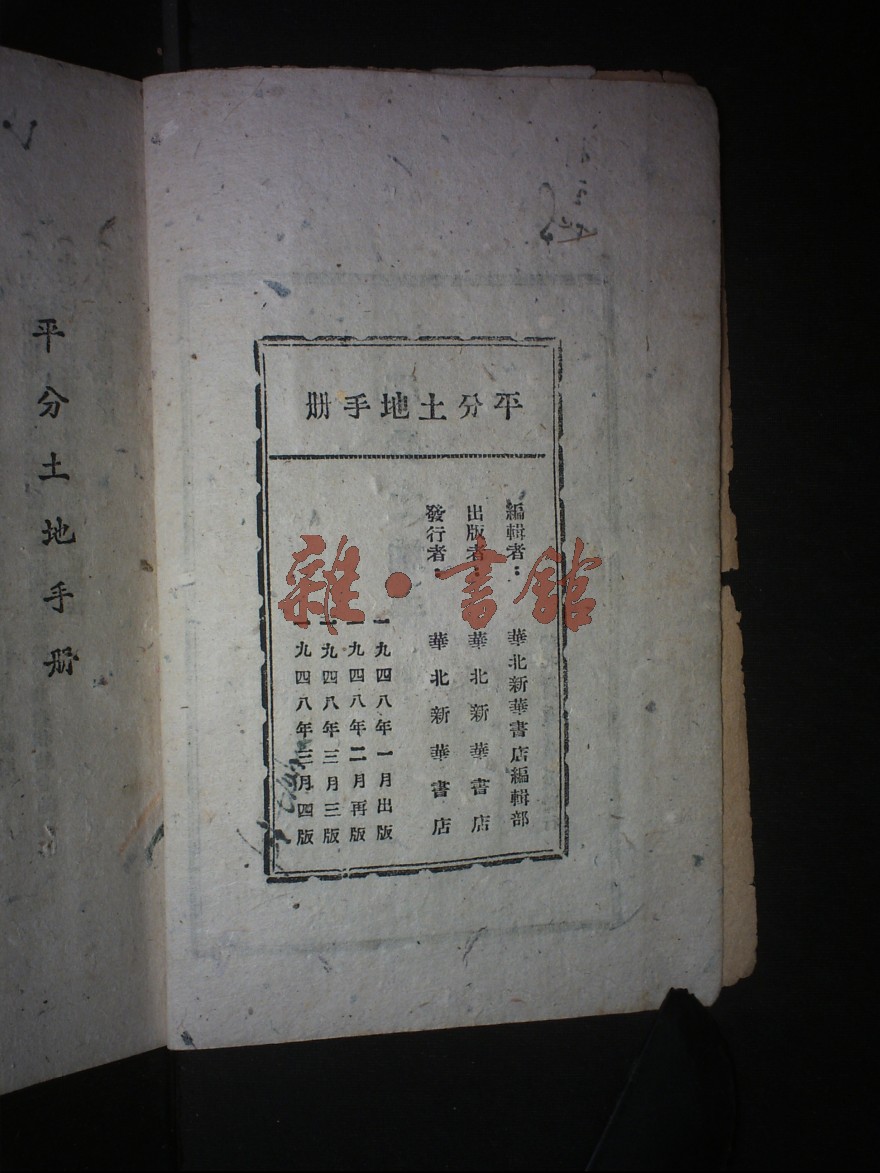 平分土地手册
平分土地手册
編輯者： 華北新華書店編輯部
出版者： 華北新華書店
發行者： 華北新華書店
一九四八年一月出版
一九四八年二月再版
一九四八年三月三版
一九四八年三月四版
雜·書館